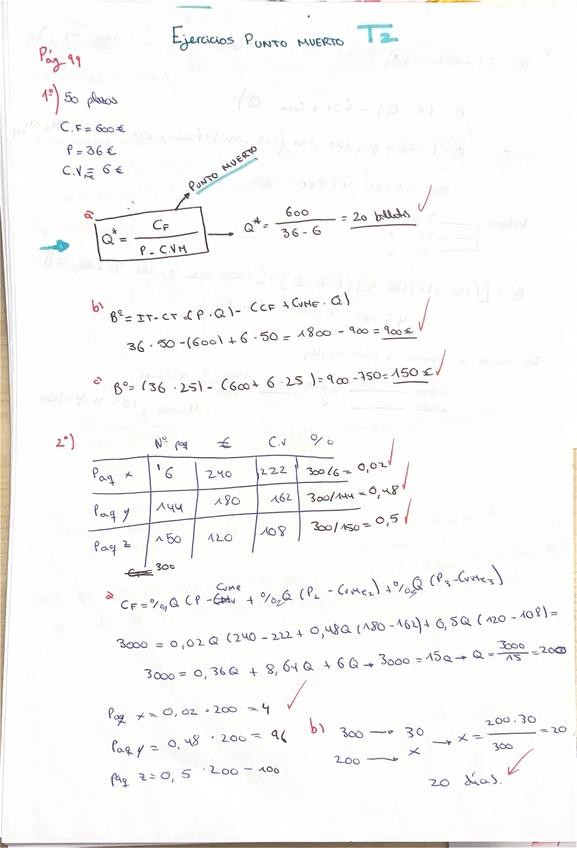 Ejercicios PUNTO MUERTO T2
Pág 99
1º) 50 plazas
C.F = 600 €
P = 36 €
C.V = 6 €
PUNTO MUERTO
a Q* = CF / P - C.VM → Q* = 600 / 36 - 6 = 20 billetes
b) Bº = IT - CT = (P · Q) - (CF + CVME · Q)
36 · 50 - (600) + 6 · 50 = 1800 - 900 = 900 €
c Bº = (36 · 25) - (600 + 6 · 25) = 900 - 750 = 150 €
2º)
Nº paq € C.V %
Paq x 6 240 222 300/6 = 0,02
Paq y 144 180 162 300/144 = 0,48
Paq z 150 120 108 300/150 = 0,5
300
a CF = %1 Q (P - CVME + %2 Q (P2 - CVME2) + %3 Q (P3 - CVME3)
3000 = 0,02 Q (240 - 222 + 0,48Q (180 - 162) + 0,5Q (120 - 108) =
3000 = 0,36Q + 8,64Q + 6Q → 3000 = 15Q → Q = 3000 / 15 = 200
Paq x = 0,02 · 200 = 4
Paq y = 0,48 · 200 = 96
Paq z = 0,5 · 200 - 100
b) 300 → 30
200 → x → x = 200 · 30 / 300 = 20
20 días.